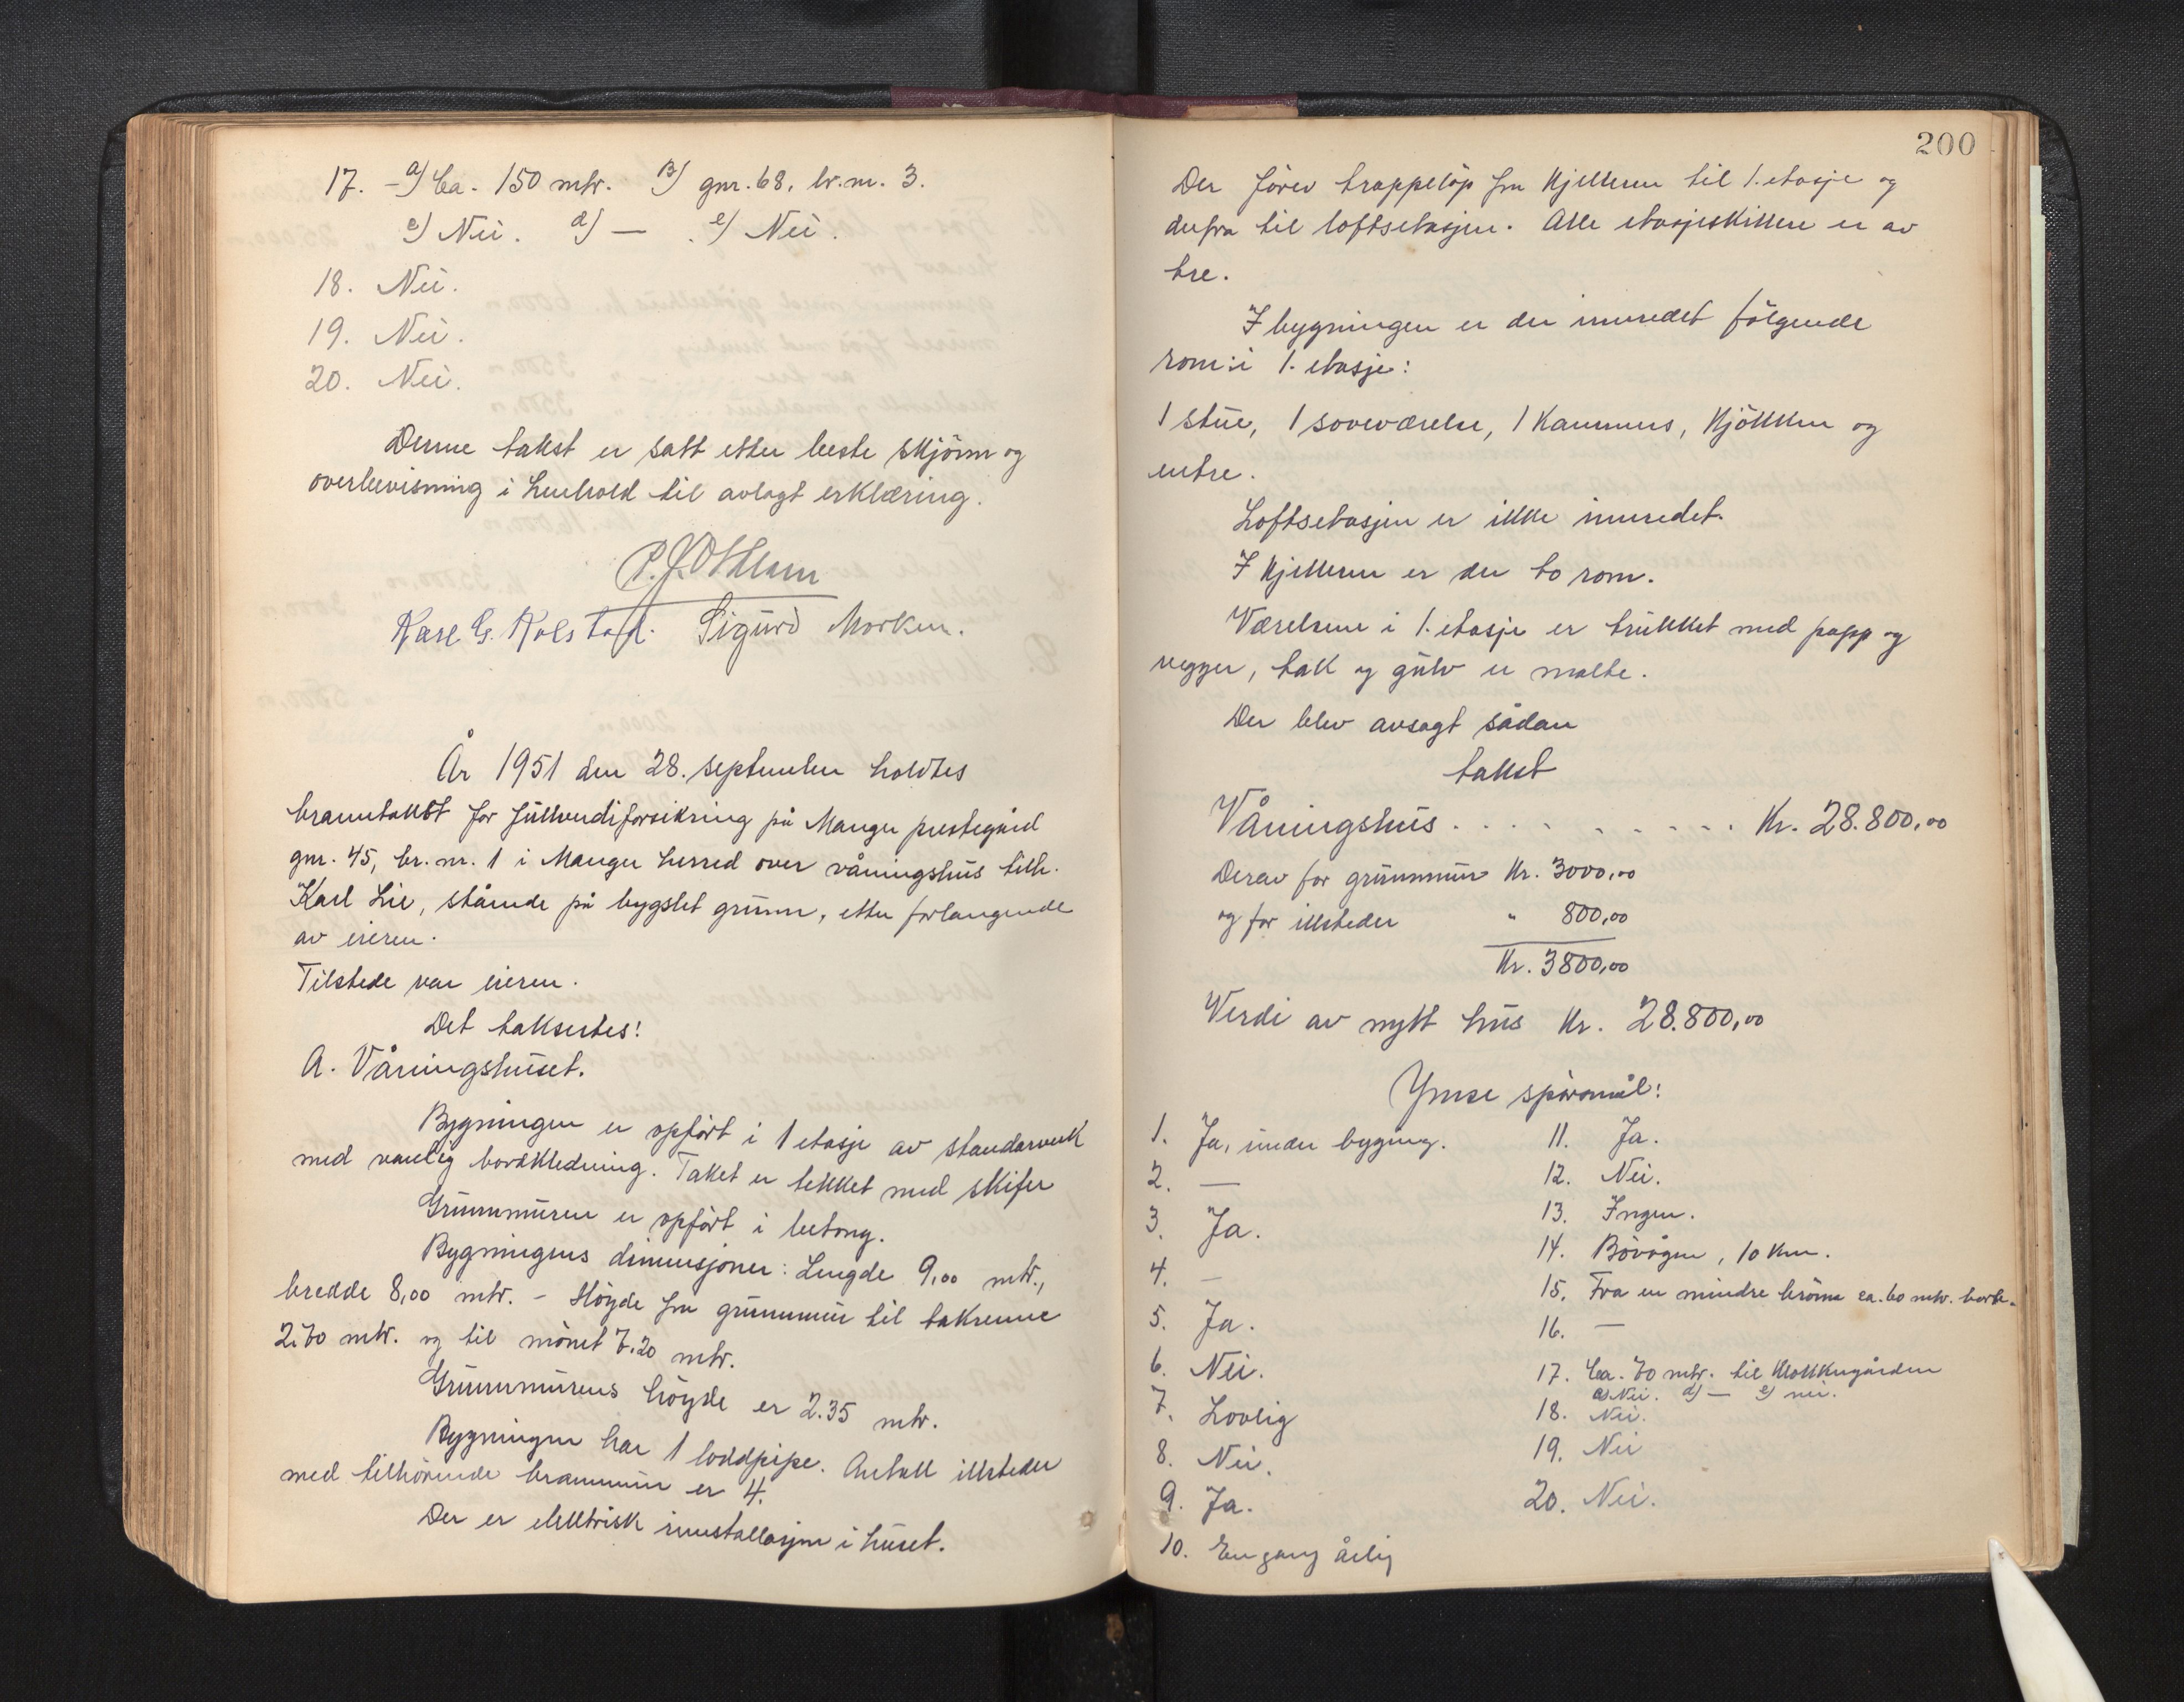 17. - a) Ca. 150 mtr. b) gnr. 68, br.nr. 3.
c) Nei. d) — . e) Nei.
18. Nei.
19. Nei.
20. Nei.
Denne takst er satt etter beste skjönn og
overbevisning i henhold til avlagt erklæring.
Karl G. Kolstad. Sigurd Morken.
År 1951 den 28. september holdtes
branntakst for fullverdiforsikring på Manger prestegård
gnr. 45, br. nr. 1 i Manger herred over våningshus tilh.
Karl Lie, stående på bygslet grunn, etter forlangende
av eieren.
Tilstede var eieren.
Det taksertes:
A. Våningshuset.
Bygningen er opfört i 1 etasje av standarverk
med vanlig bordkledning. Taket er tekket med skifer
Grunnmuren er opfört i betong.
Bygningens dimensjoner: Lengde 9,00 mtr.,
bredde 8,00 mtr. - Höyde fra grunnmur til takrenne
2.70 mtr. og til mönet 7.20 mtr.
Grunnmurens höyde er 2.35 mtr.
Bygningen har 1 loddpipe. Antall illsteder
med tilhörende brannmur er 4.
Der er elektrisk innstallasjon i huset.
200
Der förer trappelöp fra kjelleren til 1. etasje og
derfra til loftsetasjen. Alle etasjeskillere er av
tre.
I bygningen er der innredet fölgende
rom: i 1. etasje:
1 stue, 1 soveværelse, 1 kammers, kjökken og
entre.
Loftsetasjen er ikke innredet.
I kjelleren er der to rom.
Værelsene i 1. etasje er trukket med papp og
vegger, tak og gulv er malte.
Der blev avsagt sådan
takst
Våningshus . . . . . . . . . . Kr. 28.800,00
Derav for grunnmur Kr. 3000,00
og for illsteder " 800,00
Kr. 3800,00
Verdi av nytt hus Kr. 28.800,00
Ymse spörsmål:
1. Ja, under bygning.
2. —
3. Ja.
4. —
5. Ja.
6. Nei.
7. Lovlig
8. Nei.
9. Ja.
10. En gang årlig
11. Ja.
12. Nei.
13. Ingen.
14. Bövågen, 10 km.
15. Fra en mindre brönn ca. 60 mtr. borte.
16. —
17. Ca. 70 mtr. til klokkergården
c) Nei. d) — e) nei.
18. Nei.
19. Nei
20. Nei.